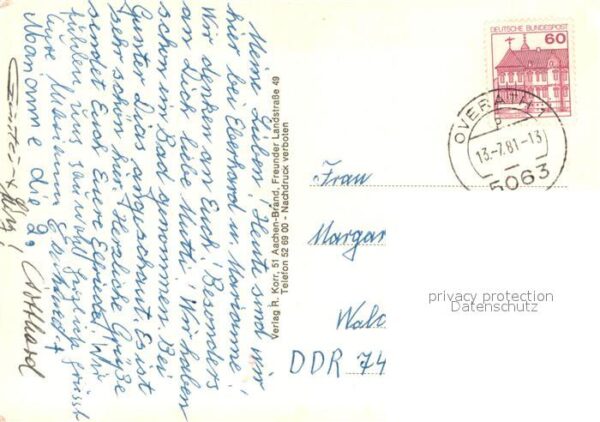 Meine Lieben! Heute sind wir
hier bei Eberhard u. Marianne.
Wir denken an Euch! Besonders
an Dich liebe Mutti! Wir haben
schon im Bad genommen. Bei
Günter Dias angeschaut. Es ist
sehr schön hier. Herzliche Grüße
sendet Euch Eure Elfriede. Wir
fühlen uns sauwohl
Eure Marianne Eberhard +
Marianne die 2.
Günter +
Gotthard
Verlag R. Korr, 51 Aachen-Brand, Freunder Landstraße 49
Telefon 52 69 00 - Nachdruck verboten
DEUTSCHE BUNDESPOST
60
OVERATH 1
13.-7.81-13
5063
Frau
Margar
Wald
DDR 74
privacy protection
Datenschutz